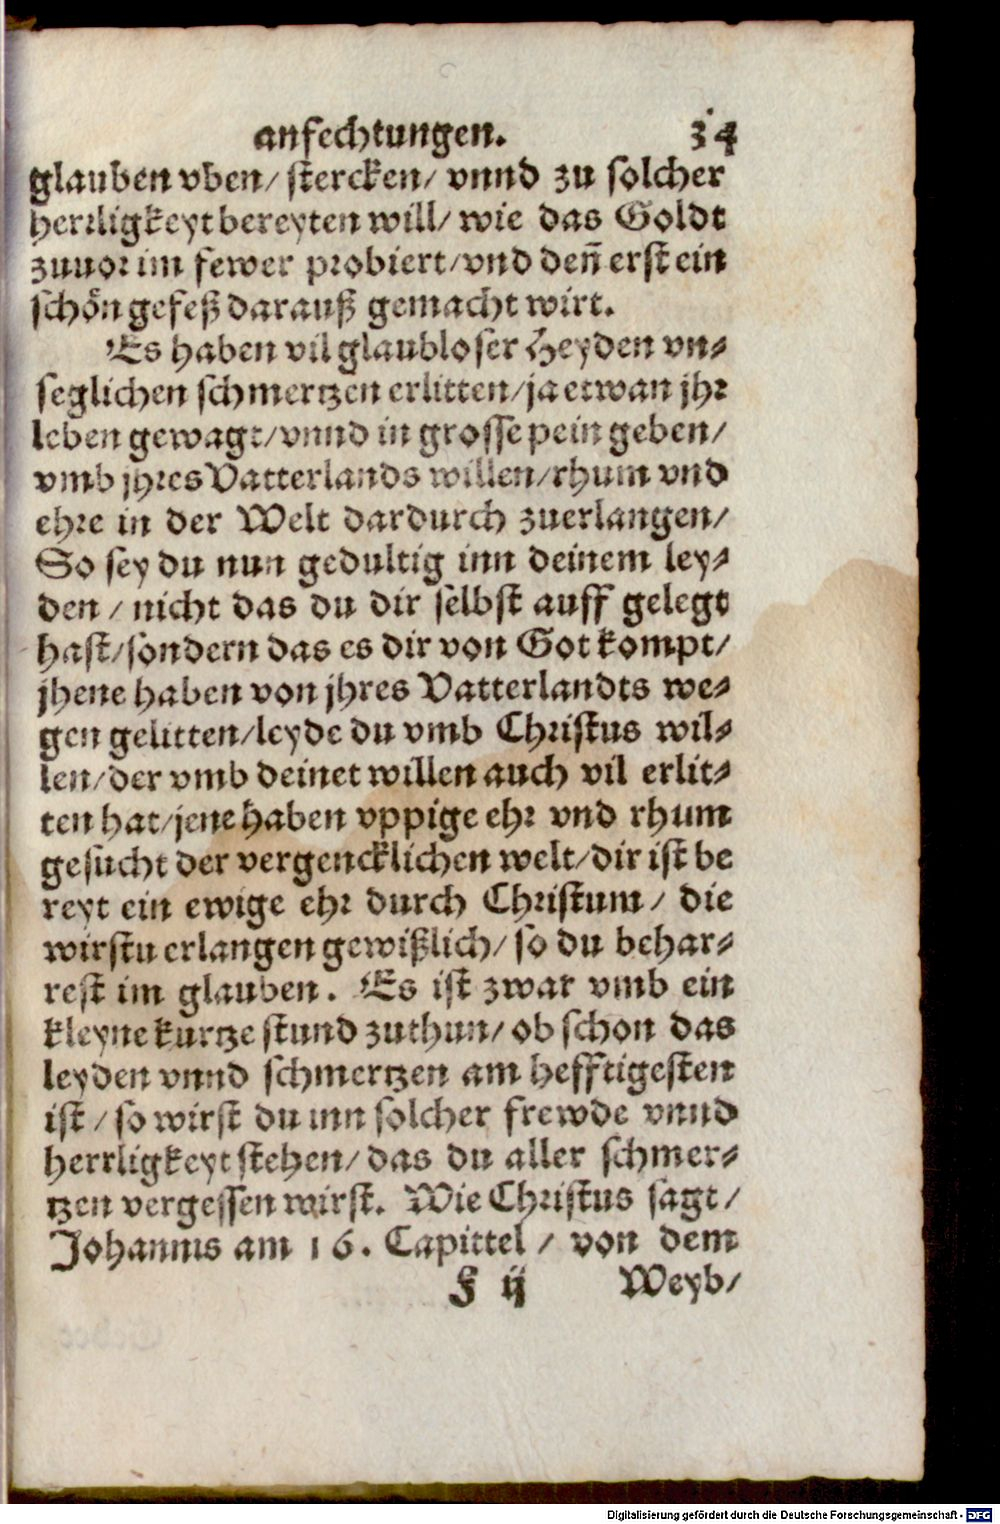 anfechtungen. 34
glauben vben/ stercken/ vnnd zu solcher
herrligkeyt bereyten will/ wie das Goldt
zuuor im fewer probiert/vnd deñ erst ein
schön gefeß darauß gemacht wirt.
Es haben vil glaubloser Heyden vn⸗
seglichen schmertzen erlitten/ja etwan jhr
leben gewagt/vnnd in grosse pein geben/
vmb jhres Vatterlands willen/rhum vnd
ehre in der Welt dardurch zuerlangen/
So sey du nun gedultig inn deinem ley⸗
den / nicht das du dir selbst auff gelegt
hast/sondern das es dir von Got kompt/
jhene haben von jhres Vatterlandts we⸗
gen gelitten/leyde du vmb Christus wil⸗
len/der vmb deinet willen auch vil erlit⸗
ten hat/jene haben vppige ehr vnd rhum
gesucht der vergencklichen welt/dir ist be
reyt ein ewige ehr durch Christum/ die
wirstu erlangen gewißlich/ so du behar⸗
rest im glauben. Es ist zwar vmb ein
kleyne kurtze stund zuthun/ ob schon das
leyden vnnd schmertzen am hefftigesten
ist/ so wirst du inn solcher frewde vnnd
herrligkeyt stehen/ das du aller schmer⸗
tzen vergessen wirst. Wie Christus sagt/
Johannis am 16. Capittel / von dem
F ij Weyb/
Digitalisierung gefördert durch die Deutsche Forschungsgemeinschaft - DFG